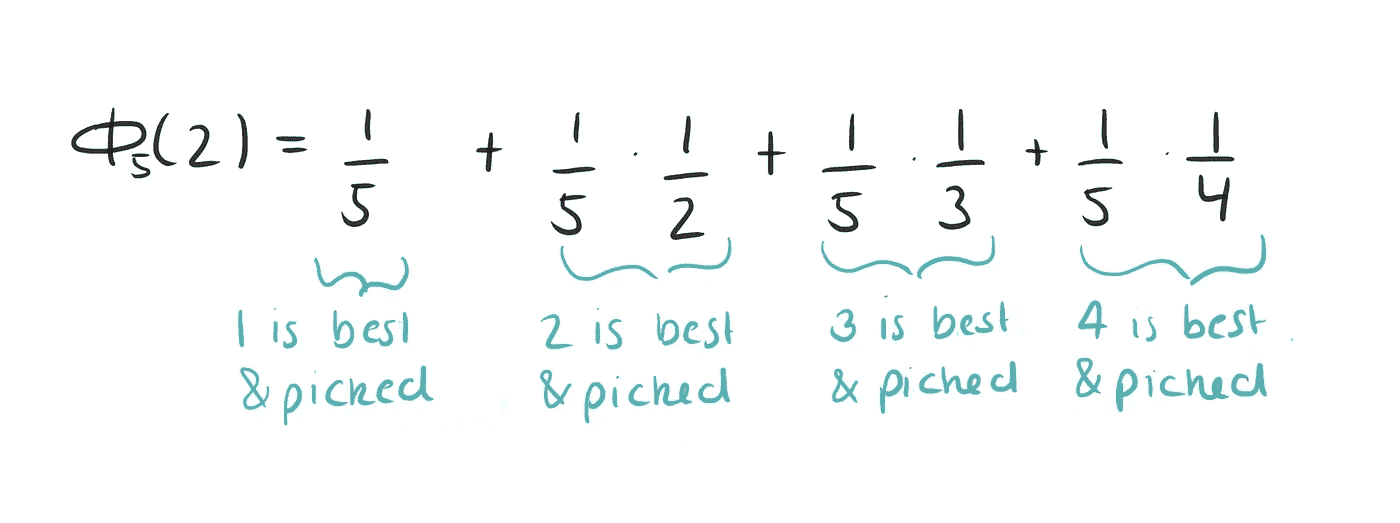 Φ₅(2) = 1/5 + 1/5 · 1/2 + 1/5 · 1/3 + 1/5 · 1/4
1 is best & picked
2 is best & picked
3 is best & picked
4 is best & picked